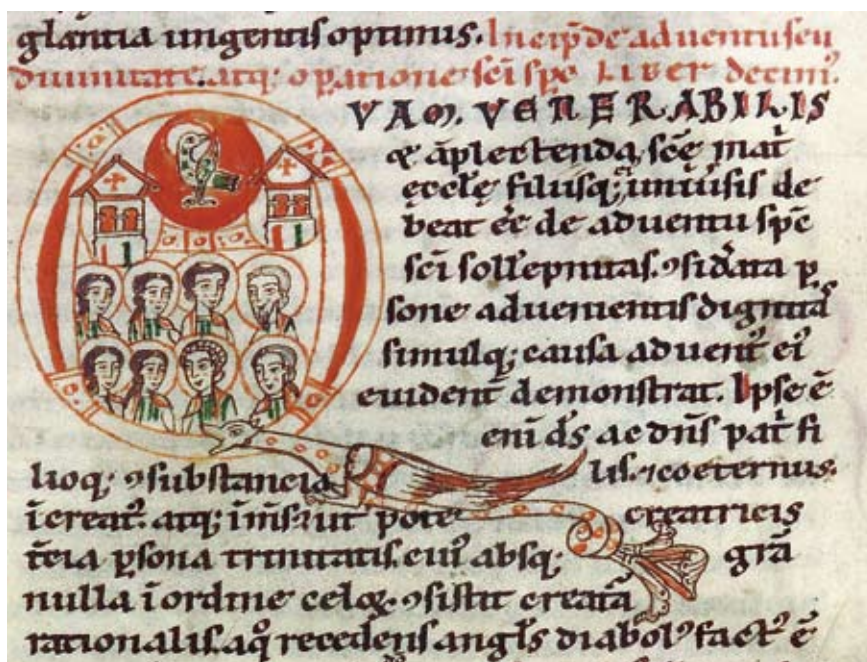 glantia ungentis optimus. Incip̃ de adventu seu
divinitate. atq; op̃atione sc̃i sp̃c LIBER decim᷒.
QVAM. VENERABILIS
& ãplectenda, sc̃ę mat̃
ęcclę filiisq; uniũsis de
beat eẽ de adventu sp̃c
sc̃i sollẽpnitas. ꝯsid̃ata p̱
sone advenientis dignitas̃
simulq; causa advent᷒ ei᷒
evident̃ demonstrat. Ipse ẽ
eni d̃s ac dñs pat̃ fi
lioq; ꝯsubstancia lis. ⁊ coeternus.
ĩcreat᷒. atq; ĩm̃s. ut pote creatricis
t̃cia p̱sona trinitatis. cui᷒ absq; gr̃a
nulla ĩ ordine celoꝝ. ꝯsistit creat̃a
rationalis. a q̊ recedens angl̃s diabol᷒ fact᷒ ẽ